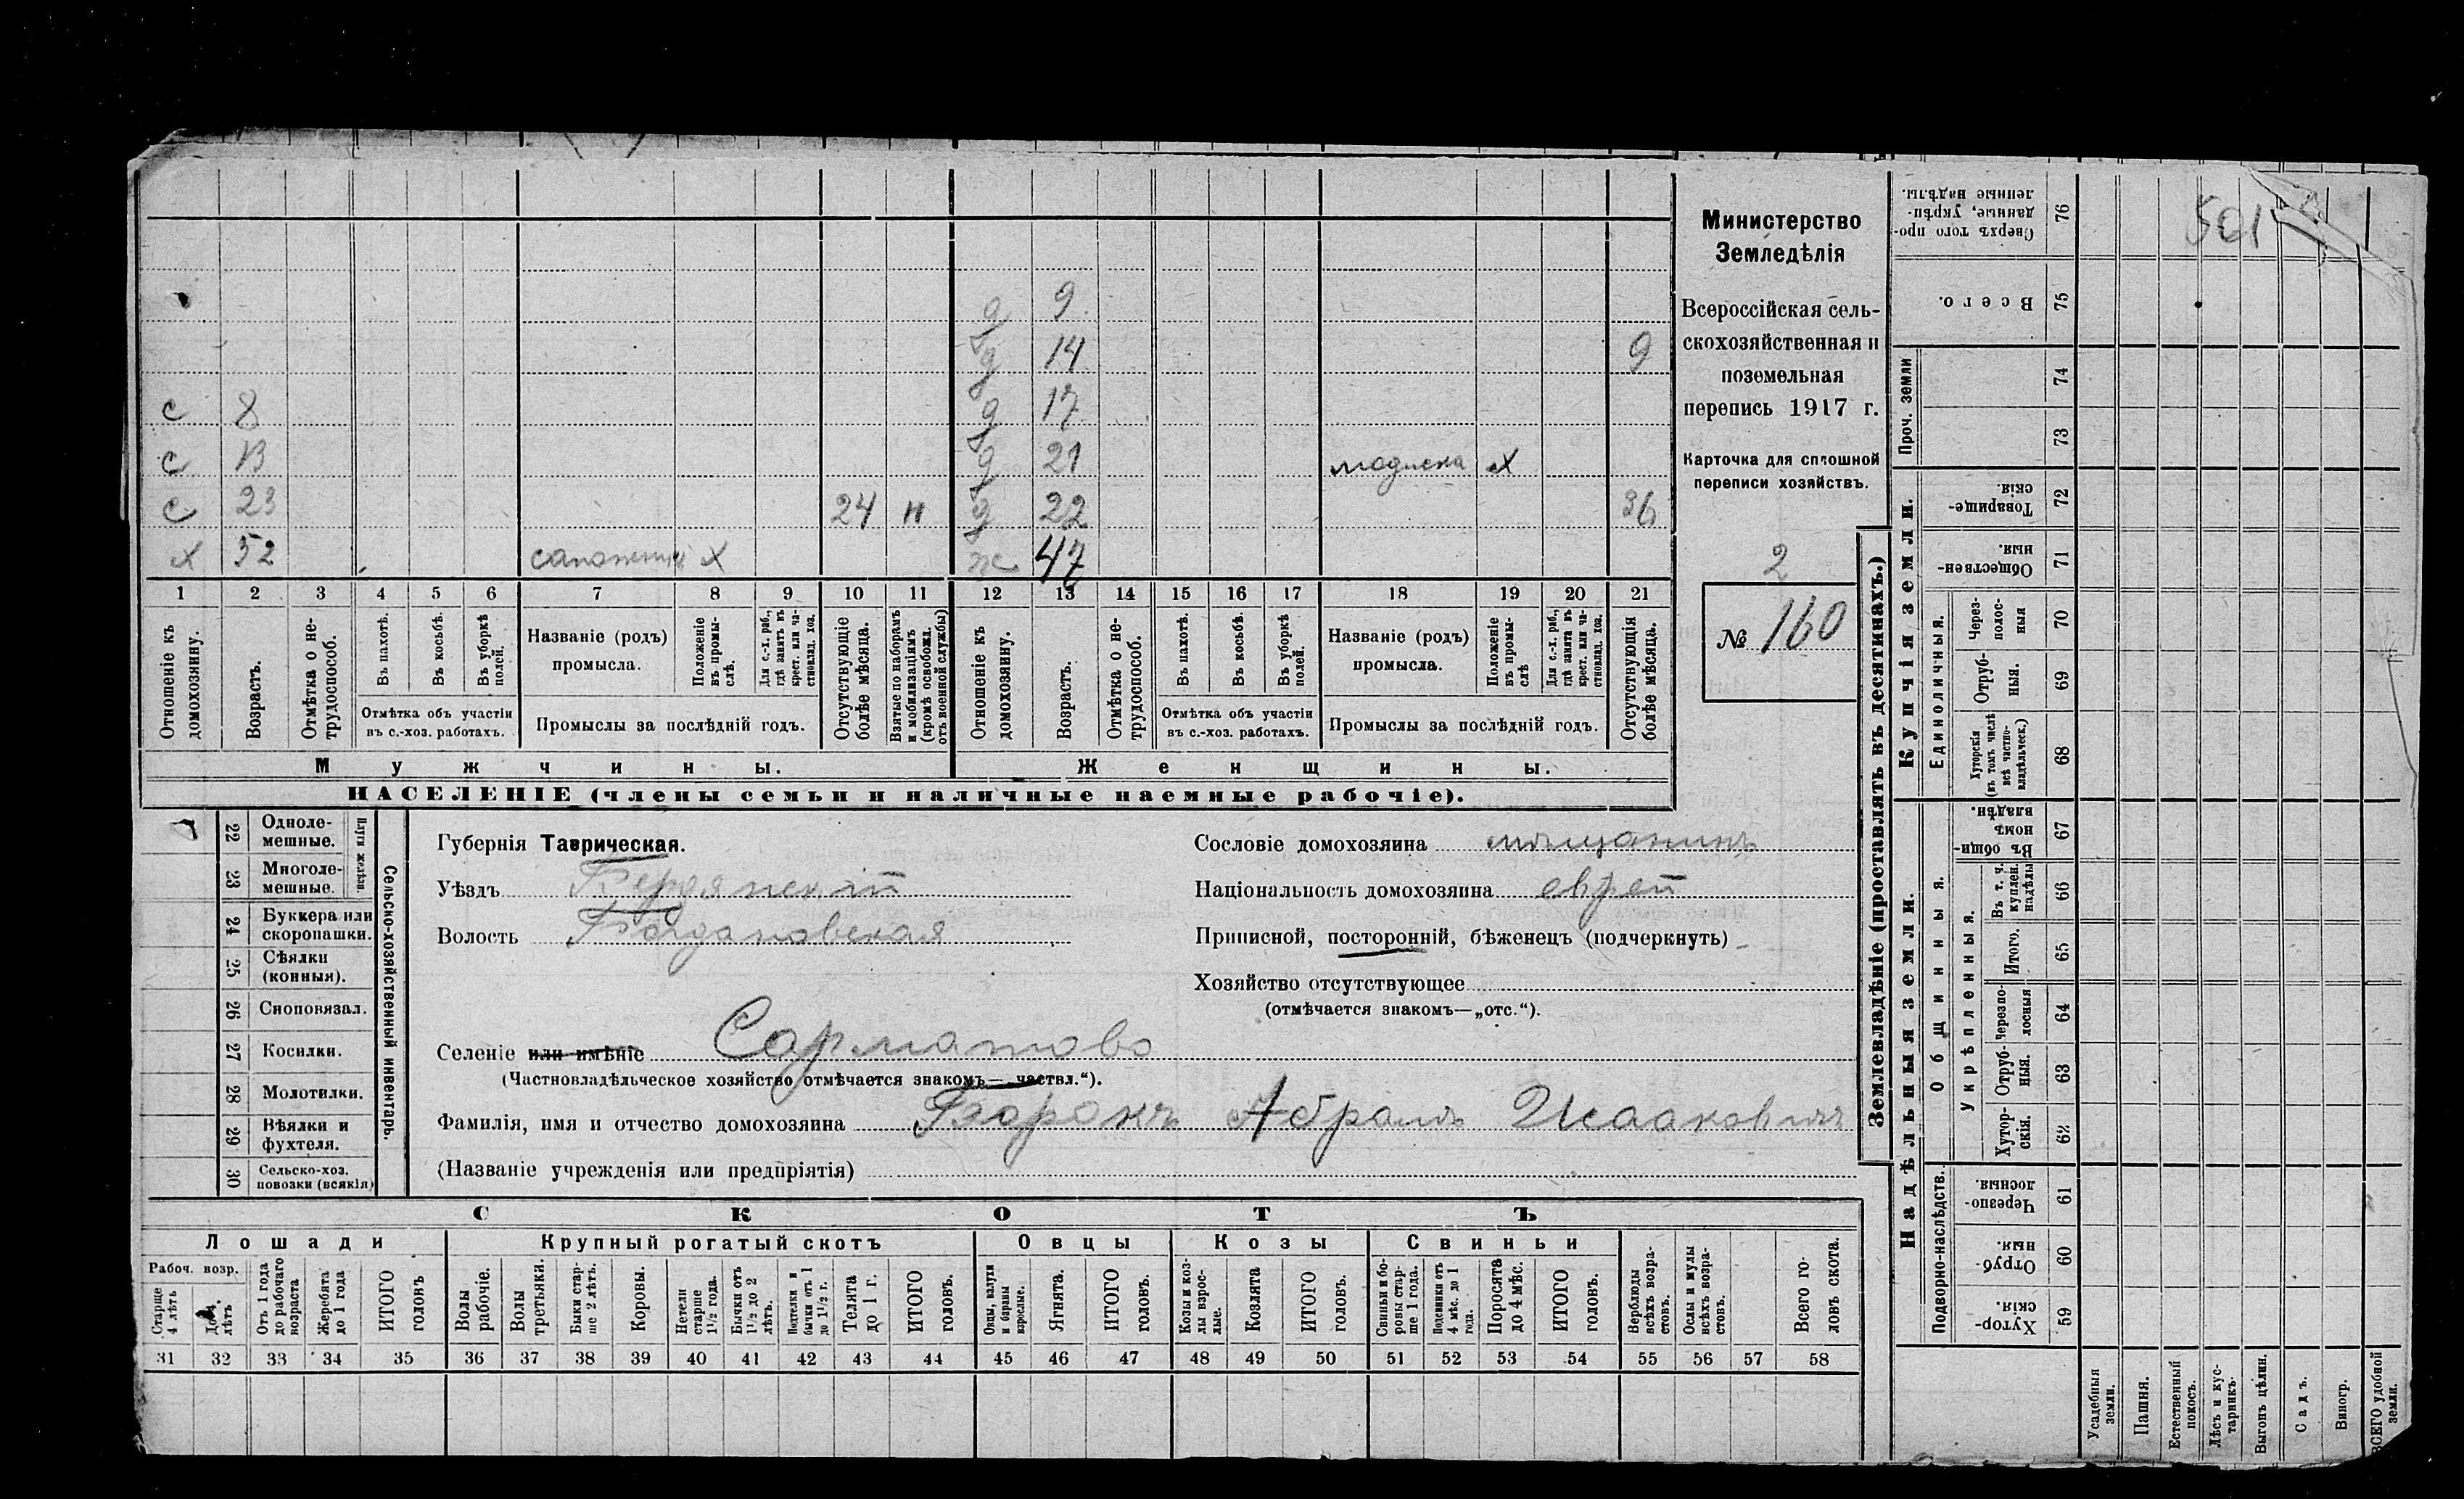 Министерство
Земледѣлія
Всероссійская сель-
скохозяйственная и
поземельная
перепись 1917 г.
Карточка для сплошной
переписи хозяйствъ.
2
№ 160
д 9
д 14 9
с 8 д 17
с 13 д 21 модиска х
с 23 24 н д 22 36
х 52 сапожникъ х ж 47
1 2 3 4 5 6 7 8 9 10 11 12 13 14 15 16 17 18 19 20 21
Отношеніе къ домохозяину.
Возрастъ.
Отмѣтка о не-трудоспособ.
Въ пахотѣ.
Въ косьбѣ.
Въ уборкѣ полей.
Отмѣтка объ участіи
въ с.-хоз. работахъ.
Названіе (родъ)
промысла.
Положеніе въ промы-слѣ.
Для с.-х. раб., гдѣ занятъ въ крест. или ча-стновлад. хоз.
Промыслы за послѣдній годъ.
Отсутствующіе болѣе мѣсяца.
Взятые по наборамъ и мобилизаціямъ (кромѣ освобожд. отъ военной службы)
Отношеніе къ домохозяину.
Возрастъ.
Отмѣтка о не-трудоспособ.
Въ пахотѣ.
Въ косьбѣ.
Въ уборкѣ полей.
Отмѣтка объ участіи
въ с.-хоз. работахъ.
Названіе (родъ)
промысла.
Положеніе въ промы-слѣ
Для с.-х. раб., гдѣ занята въ крест. или ча-стновлад. хоз.
Промыслы за послѣдній годъ.
Отсутствующія болѣе мѣсяца.
Мужчины. Женщины.
НАСЕЛЕНІЕ (члены семьи и наличные наемные рабочіе).
22 Одноле-мешные.
23 Многоле-мешные.
Плуги желѣзн.
24 Буккера или скоропашки.
25 Сѣялки (конныя).
26 Сноповязал.
27 Косилки.
28 Молотилки.
29 Вѣялки и фухтеля.
30 Сельско-хоз. повозки (всякія)
Сельско-хозяйственный инвентарь.
Губернія Таврическая.
Уѣздъ Бердянскій
Волость Богдановская
Сословіе домохозяина мѣщанинъ
Національность домохозяина еврей
Приписной, посторонній, бѣженецъ (подчеркнуть)
Хозяйство отсутствующее
(отмѣчается знакомъ—„отс.“).
Селеніе или имѣніе Сарматово
(Частновладѣльческое хозяйство отмѣчается знакомъ—„частвл.“).
Фамилія, имя и отчество домохозяина Борокъ Абрамъ Исааковичъ
(Названіе учрежденія или предпріятія)
СКОТЪ
Лошади Крупный рогатый скотъ Овцы Козы Свиньи
Рабоч. возр.
Старше 4 лѣтъ
До 4 лѣтъ
Отъ 1 года до рабочаго возраста
Жеребята до 1 года
ИТОГО головъ
Волы рабочіе.
Волы третьяки.
Быки стар-ше 2 лѣтъ.
Коровы.
Нетели старше 1½ года.
Бычки отъ 1½ до 2 лѣтъ.
Подтелки и бычки отъ 1 до 1½ г.
Телята до 1 г.
ИТОГО головъ.
Овцы, валухи и бараны взрослые.
Ягнята.
ИТОГО головъ.
Козы и коз-лы взрос-лые.
Козлята
ИТОГО головъ.
Свиньи и бо-ровы стар-ше 1 года.
Подсвинки отъ 4 мѣс. до 1 года.
Поросята до 4 мѣс.
ИТОГО головъ.
Верблюды всѣхъ возра-стовъ.
Ослы и мулы всѣхъ возра-стовъ.
Всего го-ловъ скота.
31 32 33 34 35 36 37 38 39 40 41 42 43 44 45 46 47 48 49 50 51 52 53 54 55 56 57 58
Землевладѣніе (проставлять въ десятинахъ.)
Надѣльныя земли. Купчія земли.
Проч. земли
Подворно-наслѣдств.
Общинныя.
Укрѣпленныя.
Единоличныя.
Сверхъ того про-данные, укрѣп-ленные надѣлы. 76
Всего. 75
74
73
Товарище-скія. 72
Обществен-ныя. 71
Через-полос-ныя 70
Отруб-ныя. 69
Хуторскія (въ томъ числѣ всѣ частно-владѣльческ.) 68
Въ общин-номъ владѣн. 67
Въ т. ч. куплен. надѣлы 66
Итого. 65
Черезпо-лосныя 64
Отруб-ныя. 63
Хутор-скія. 62
Черезпо-лосныя. 61
Отруб-ныя. 60
Хутор-скія. 59
Усадебныя земли.
Пашня.
Естественный покосъ.
Лѣсъ и кус-тарникъ.
Выгонъ цѣлин.
Садъ.
Виногр.
ВСЕГО удобной земли.